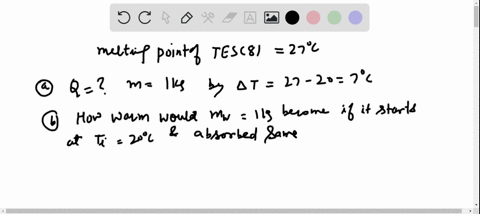 melting point of TESC81 = 27°C
(a) Q = ? m = 1kg by ΔT = 27 - 20 = 7°C
(b) How warm would mw = 1kg become if it starts
at Ti = 20°C & absorbed same